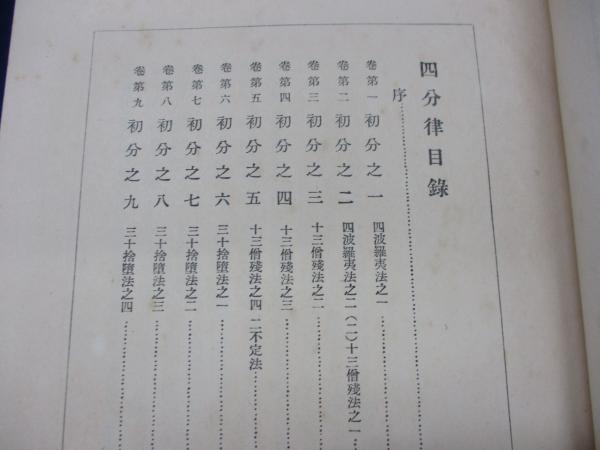 四分律目錄
序
卷第一 初分之一 四波羅夷法之一
卷第二 初分之二 四波羅夷法之二(二)十三僧殘法之一
卷第三 初分之三 十三僧殘法之二
卷第四 初分之四 十三僧殘法之三
卷第五 初分之五 十三僧殘法之四 二不定法
卷第六 初分之六 三十捨墮法之一
卷第七 初分之七 三十捨墮法之二
卷第八 初分之八 三十捨墮法之三
卷第九 初分之九 三十捨墮法之四